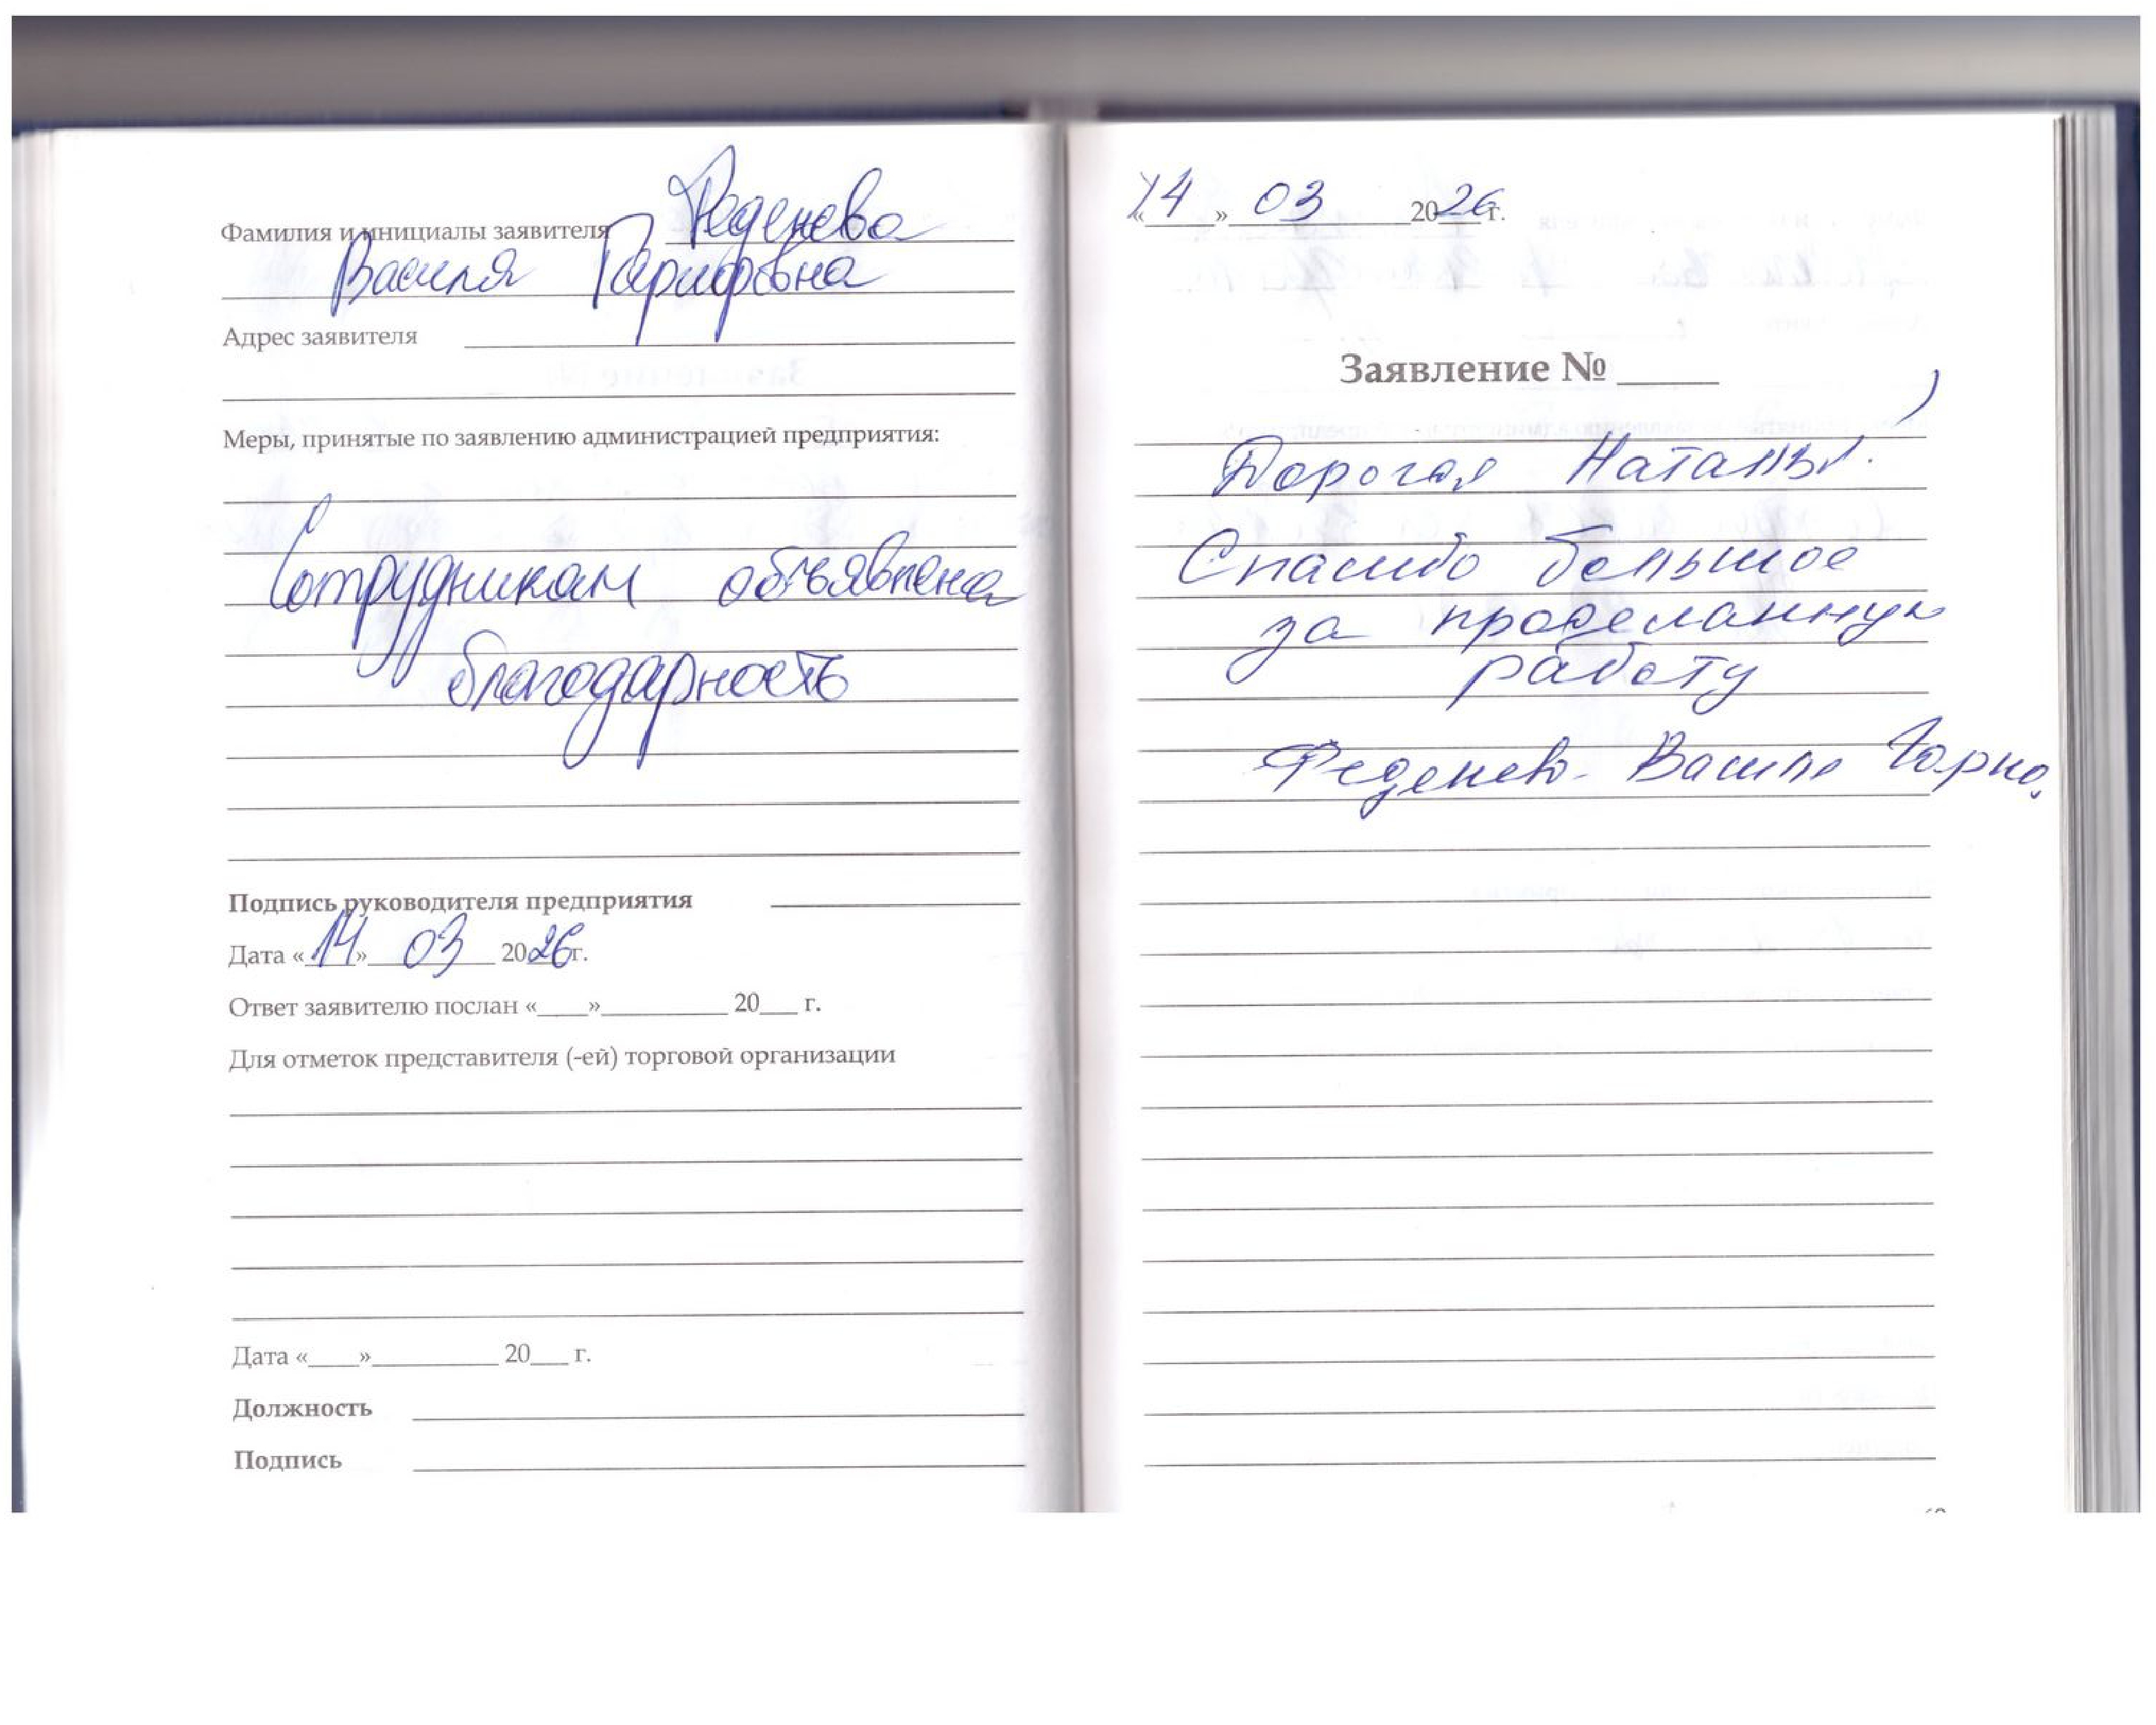 Фамилия и инициалы заявителя Феденева
Василя Гарифовна
Адрес заявителя
Меры, принятые по заявлению администрацией предприятия:
Сотрудникам объявлена
благодарность
Подпись руководителя предприятия
Дата «14» 03 2026г.
Ответ заявителю послан «____»__________ 20___ г.
Для отметок представителя (-ей) торговой организации
Дата «____»__________ 20___ г.
Должность
Подпись
«14» 03 2026г.
Заявление № _____
Дорогая Наталья!
Спасибо большое
за проделанную
работу
Василя